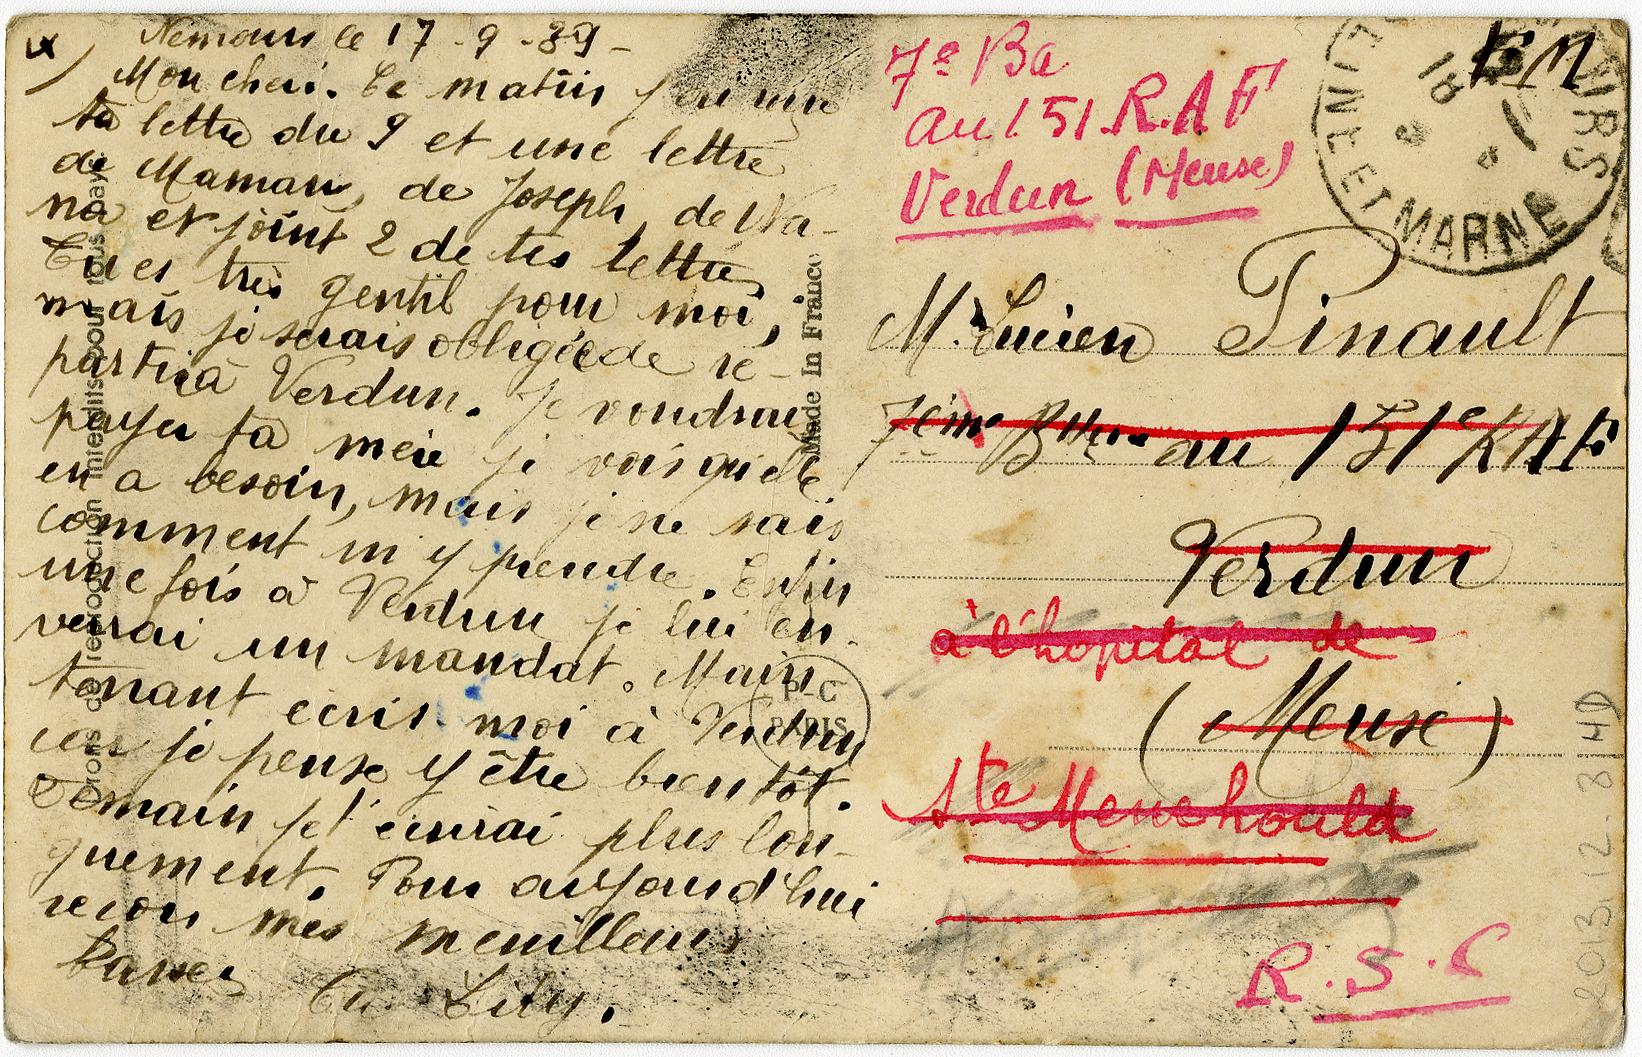 Nemours le 17-9-39-
Mon cheri. Ce matin j'ai
ta lettre du 9 et une lettre
de Maman, de Joseph, de Na-
na et joint 2 de tes lettre,
Tu es très gentil pour moi,
mais je serais obligée de re-
partir à Verdun. Je voudrai
payer ta mère je vois qu'elle
en a besoin, mais je ne sais
comment m'y prendre. Enfin
une fois à Verdun je lui en-
verrai un mandat. Main
tenant ecris moi à Verdun
car je pense y être bientôt.
Demain je t'ecrirai plus lon-
guement. Pour aujourd'hui
recois mes meuilleurs
baiser
Ta Lily.
Made In France
P-C
PARIS
7e Ba
au 151. R.A.F
Verdun (Meuse)
18
MARNE
FM
M. Lucien Pinault
7ème Btterie au 151e RAF
Verdun
à l'hopital de
(Meuse)
Ste Menehould
R.S.C
2013.12.8 HD